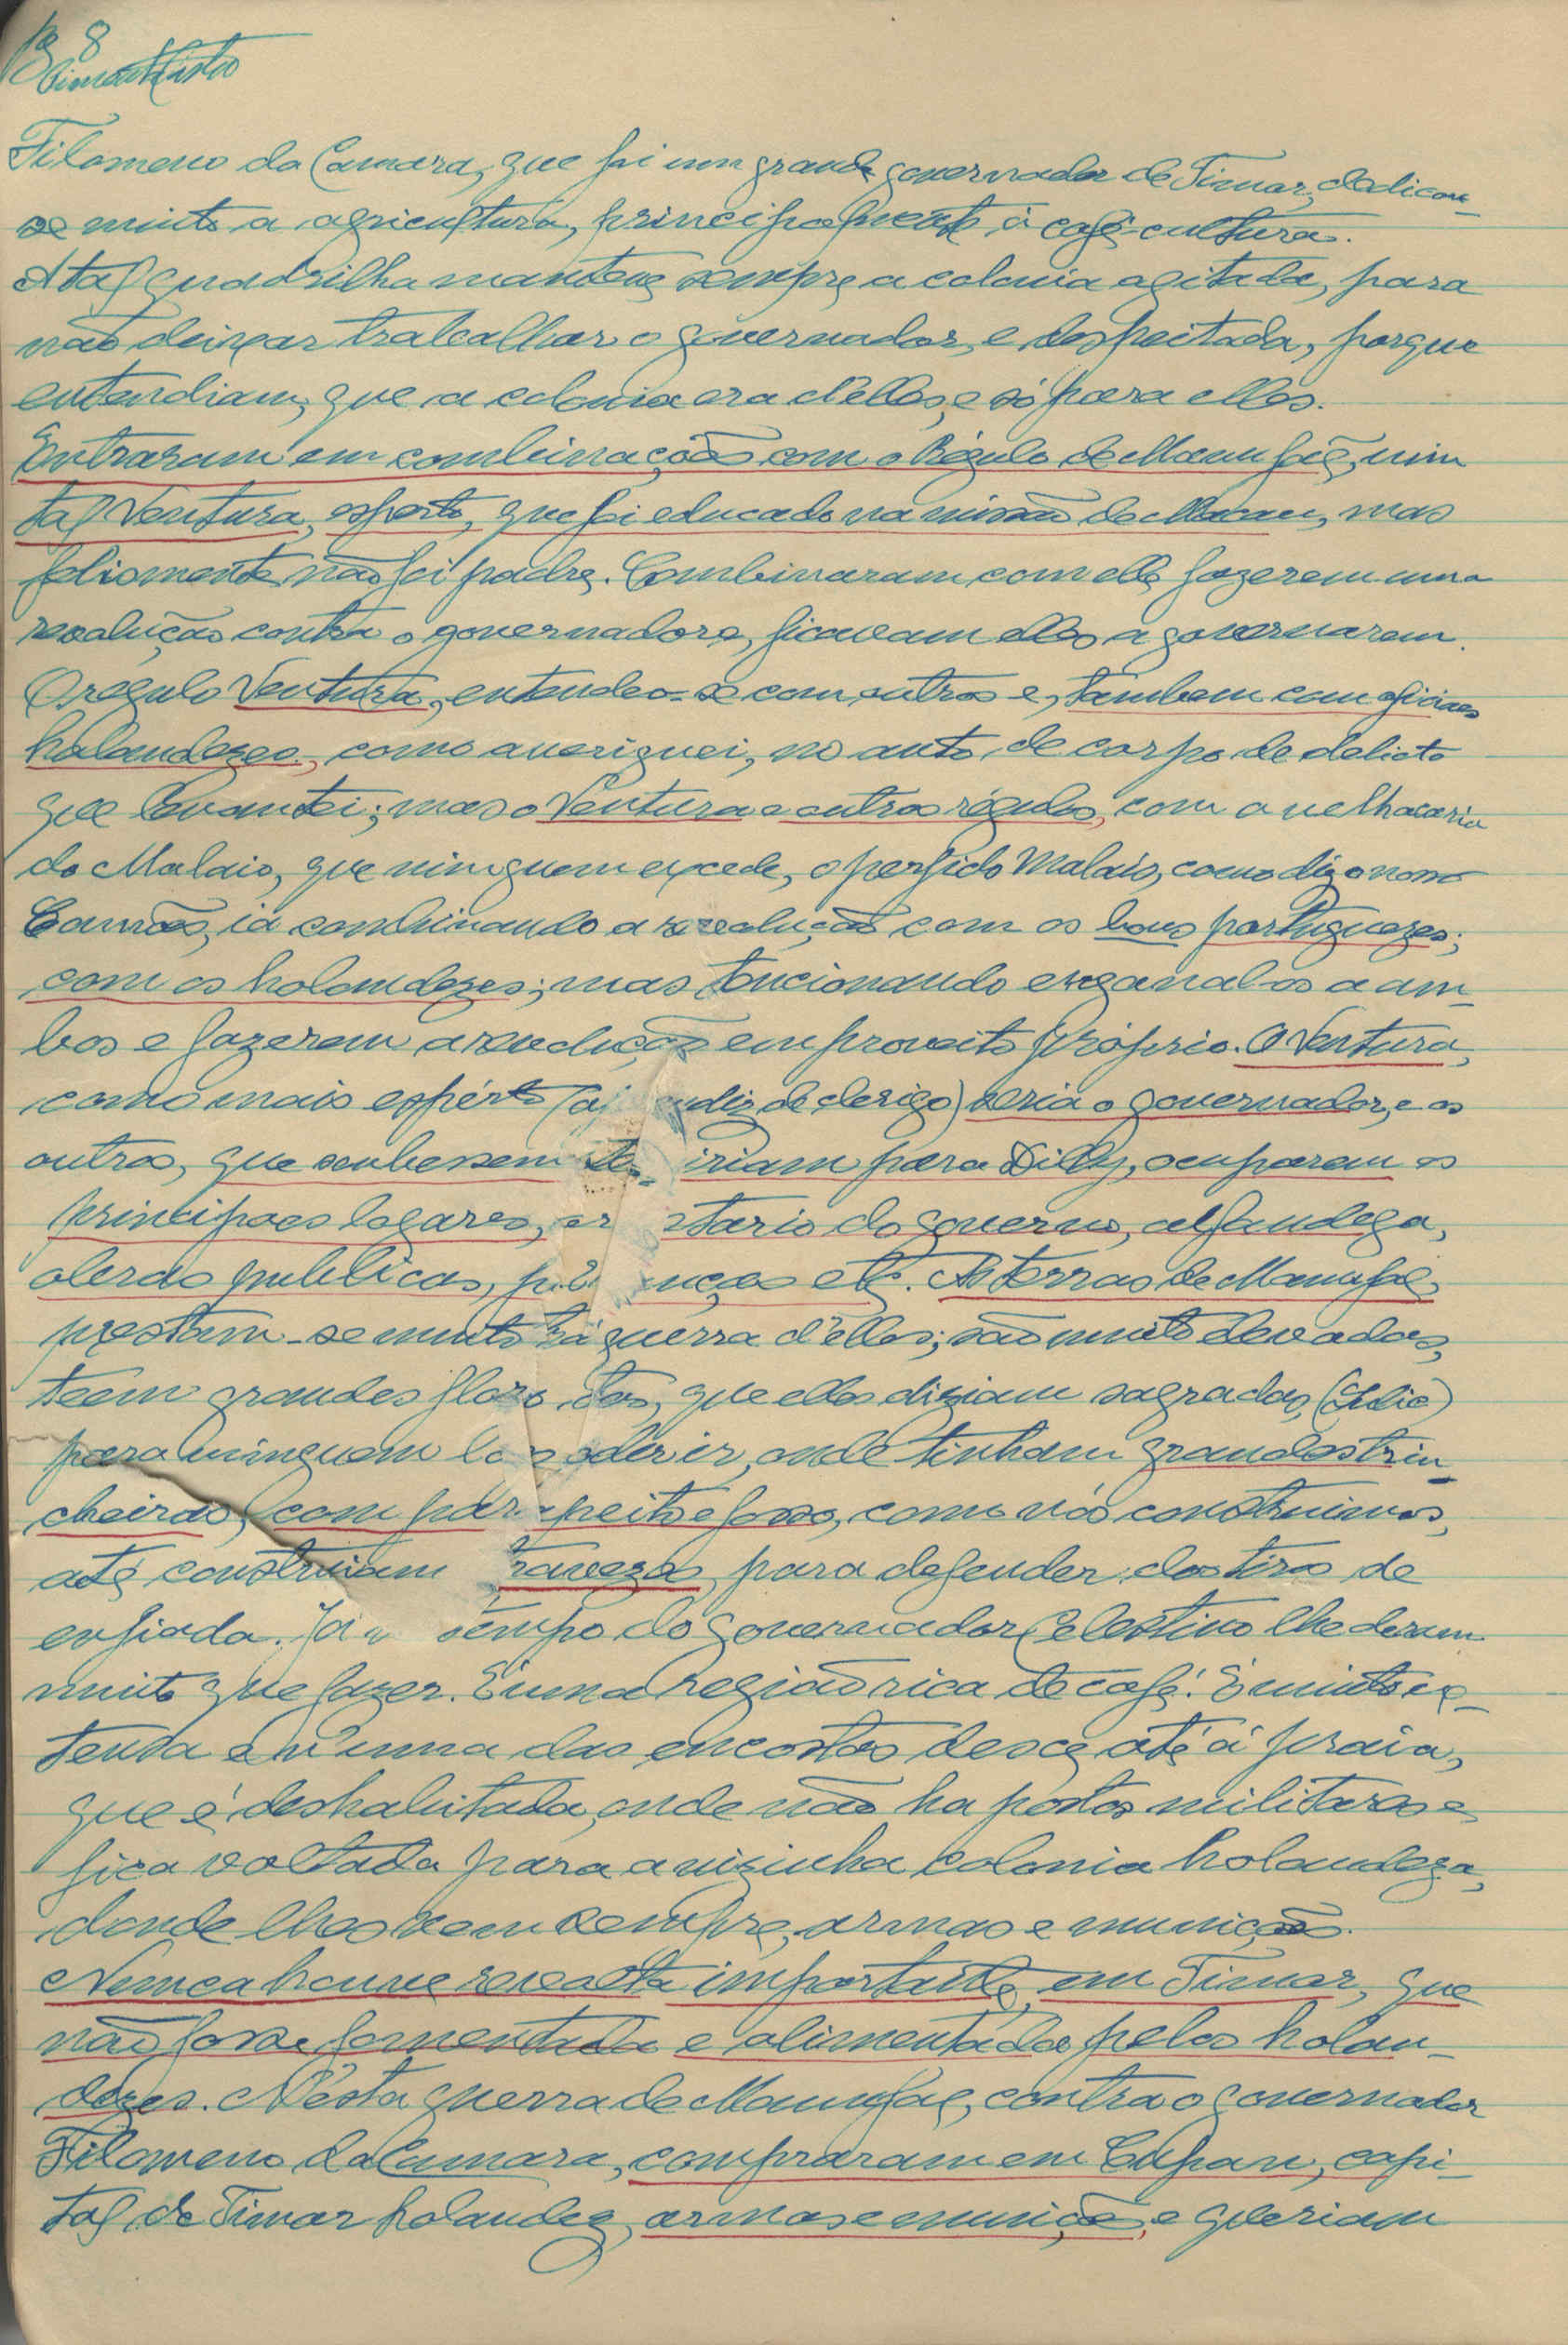 Pg 8
Pimenta Castro
Filomeno da Camara, que foi um grande governador de Timor, dedicou-
se muito a agricultura, principalmente á café-cultura.
A tal quadrilha manteve sempre a colonia agitada, para
não deixar trabalhar o governador, e despeitada, porque
entendiam, que a colonia era d'elles, e só para elles.
Entraram em combinação com o Régulo de Manufaé, um
tal Ventura, esperto, que foi educado na missão de Macau, mas
felismente não foi padre. Combinaram com elle fazerem uma
revolução contra o governadore, ficavam elles a governarem.
O regulo Ventura, entendeo-se com outros e, tambem com oficiaes
holandezes, como averiguei, no auto de corpo de delicto
que levantei; mas o Ventura e outros régulos, com a velhacaria
do Malaio, que ninguem excede, o perfido Malaio, como diz o nosso
Camões, ia combinando a revolução com os bons portuguezes;
com os holandezes; mas tencionando enganal-os a am-
bos e fazerem a revolução em proveito próprio. O Ventura,
como mais espérto (ap endiz de clerigo) seria o governador, e os
outros, que soubessem iriam para Dilly, ocuparem os
principaes logares, tario do governo, alfandega,
obras publicas, etc. As terras de Manufaé
prestam-se muito á guerra d'elles; são muito elevadas,
teem grandes flore tas, que elles diziam sagradas, (Lulic)
para ninguem la poder ir, onde tinham grandes trin-
cheiras, com parapeito e fosso, como nós construimos,
até construiam travezes, para defender dos tiros de
enfiada. Já tempo do governador Celestino lhe deram
muito que fazer. É uma região rica de café. É muito ex-
tensa e n'uma das encostas desce até á praia,
que é deshabitada, onde não ha postos militares e
fica voltada para a vizinha colonia holandeza,
donde lhes vem sempre, armas e munição.
Nunca houve revolta importante, em Timor, que
não fosse fomentada e alimentada pelos holan-
dezes. Nésta guerra de Manufaé, contra o governador
Filomeno da Camara, compraram em Cupan, capi-
tal de Timor holandez, armas e munição, e queriam